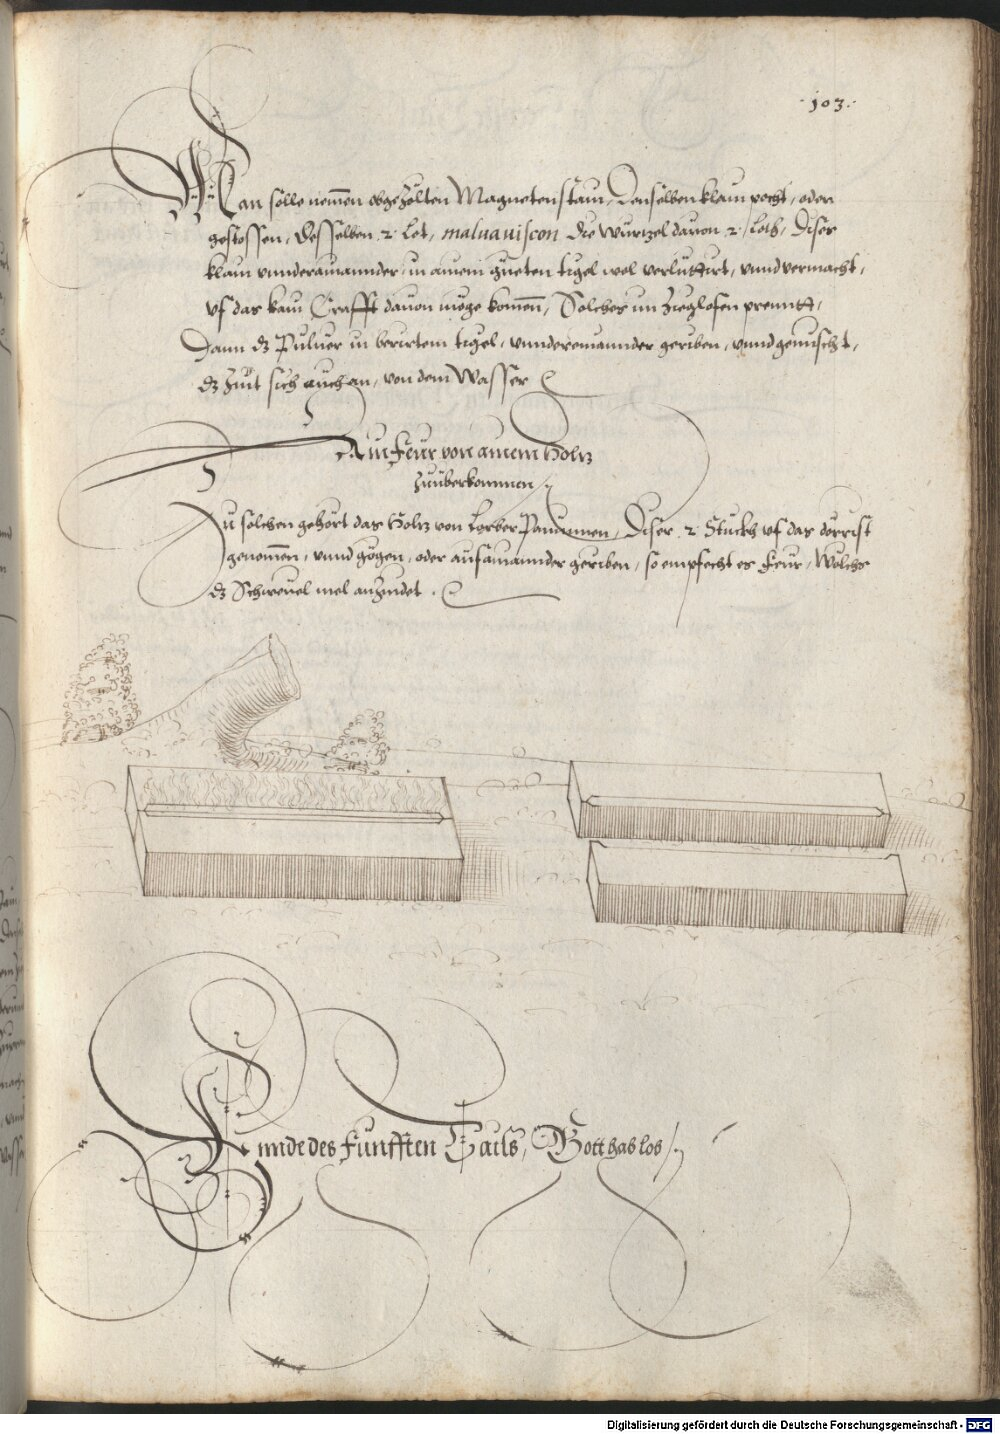 ·103·
Man solle nemen obgezölten Magnetenstain, Denselben klain pocht, oder
gestossen, desselben .2. Lot, maluauiscon die wurtzel dauon .2. Loth, Diser
klain vnnderainannder, in ainem gueten tigel wol verluttirt, vnnd vermacht,
vf das kain Crafft dauon müge komen, Solches im Zieglofen prenntt,
Dann dz Puluer in berirtem tigel, vnnderainannder geriben, vnnd gemischt,
dz Zint sich auch an, von dem Wasser
Ain feur von ainem Holtz
Züüberkommen
Zu solchen gehört das Holtz von Lorber Paumen, Diser .2. Stuckh vf das dörrist
genomen, vnnd gögen, oder aufainannder geriben, so empfecht es feur, Welchs
dz Schweuel mel anzindet.
Ennde des funfften Tails, Gott hab lob
Digitalisierung gefördert durch die Deutsche Forschungsgemeinschaft - DFG